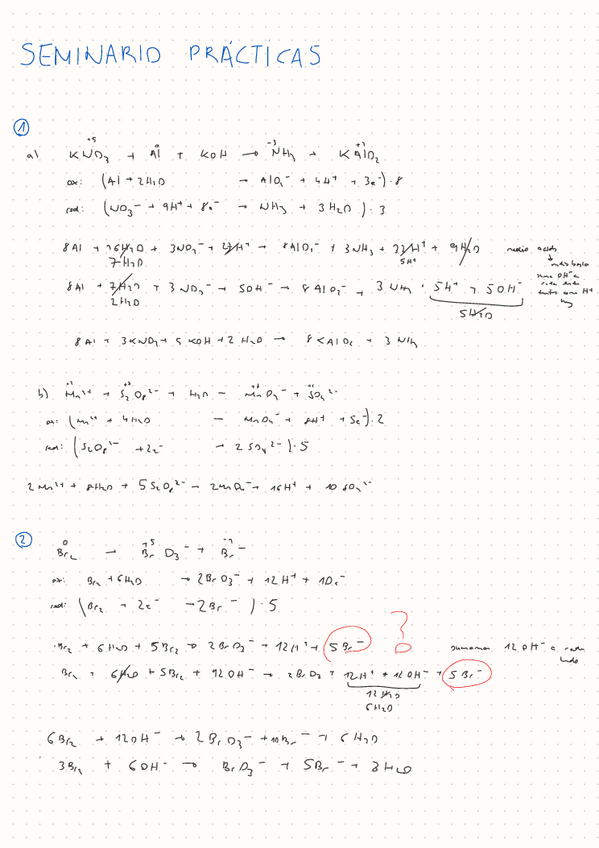 SEMINARIO PRÁCTICAS
①
a) K N⁺⁵O₃ + Al⁰ + KOH → N⁻³H₃ + K Al⁺³O₂
ox: (Al + 2H₂O → AlO₂⁻ + 4H⁺ + 3e⁻)·8
red: (NO₃⁻ + 9H⁺ + 8e⁻ → NH₃ + 3H₂O)·3
8Al + 16H₂O + 3NO₃⁻ + 27H⁺ → 8AlO₂⁻ + 3NH₃ + 32H⁺ + 9H₂O medio
7H₂O 5H⁺
8Al + 7H₂O + 3NO₃⁻ + 5OH⁻ → 8AlO₂⁻ + 3NH₃ + 5H⁺ + 5OH⁻
2H₂O 5H₂O
8Al + 3KNO₃ + 5KOH + 2H₂O → 8KAlO₂ + 3NH₃
b) Mn²⁺ + S₂O₈²⁻ + H₂O → MnO₄⁻ + SO₄²⁻
ox: (Mn²⁺ + 4H₂O → MnO₄⁻ + 8H⁺ + 5e⁻)·2
red: (S₂O₈²⁻ + 2e⁻ → 2SO₄²⁻)·5
2Mn²⁺ + 8H₂O + 5S₂O₈²⁻ → 2MnO₄⁻ + 16H⁺ + 10SO₄²⁻
②
Br₂⁰ → Br⁺⁵O₃⁻ + Br⁻¹⁻
ox: Br₂ + 6H₂O → 2BrO₃⁻ + 12H⁺ + 10e⁻
red: (Br₂ + 2e⁻ → 2Br⁻)·5
Br₂ + 6H₂O + 5Br₂ → 2BrO₃⁻ + 12H⁺ + 5Br⁻ ? sumamos 12OH⁻ a cada lado
Br₂ + 6H₂O + 5Br₂ + 12OH⁻ → 2BrO₃ + 12H⁺ + 12OH⁻ + 5Br⁻
12H₂O
6H₂O
6Br₂ + 12OH⁻ → 2BrO₃⁻ + 10Br⁻ + 6H₂O
3Br₂ + 6OH⁻ → BrO₃⁻ + 5Br⁻ + 3H₂O